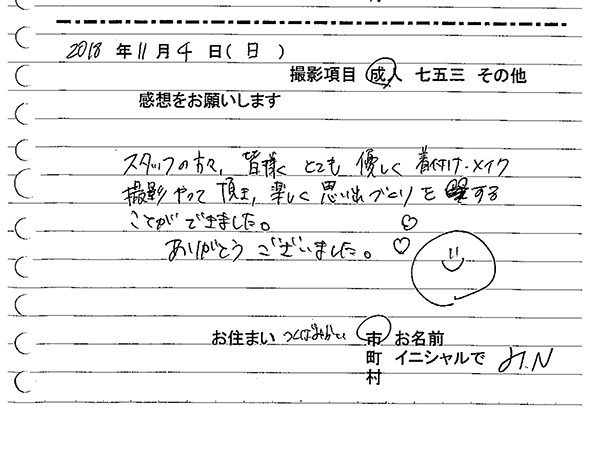 2018 年 11 月 4 日 ( 日 )
撮影項目 成人 七五三 その他
感想をお願いします
スタッフの方々、皆様とても優しく着付け・メイク
撮影やって頂き、楽しく思い出づくりをする
ことができました。
ありがとうございました。
お住まい つくばみらい 市 お名前
町 イニシャルで
村